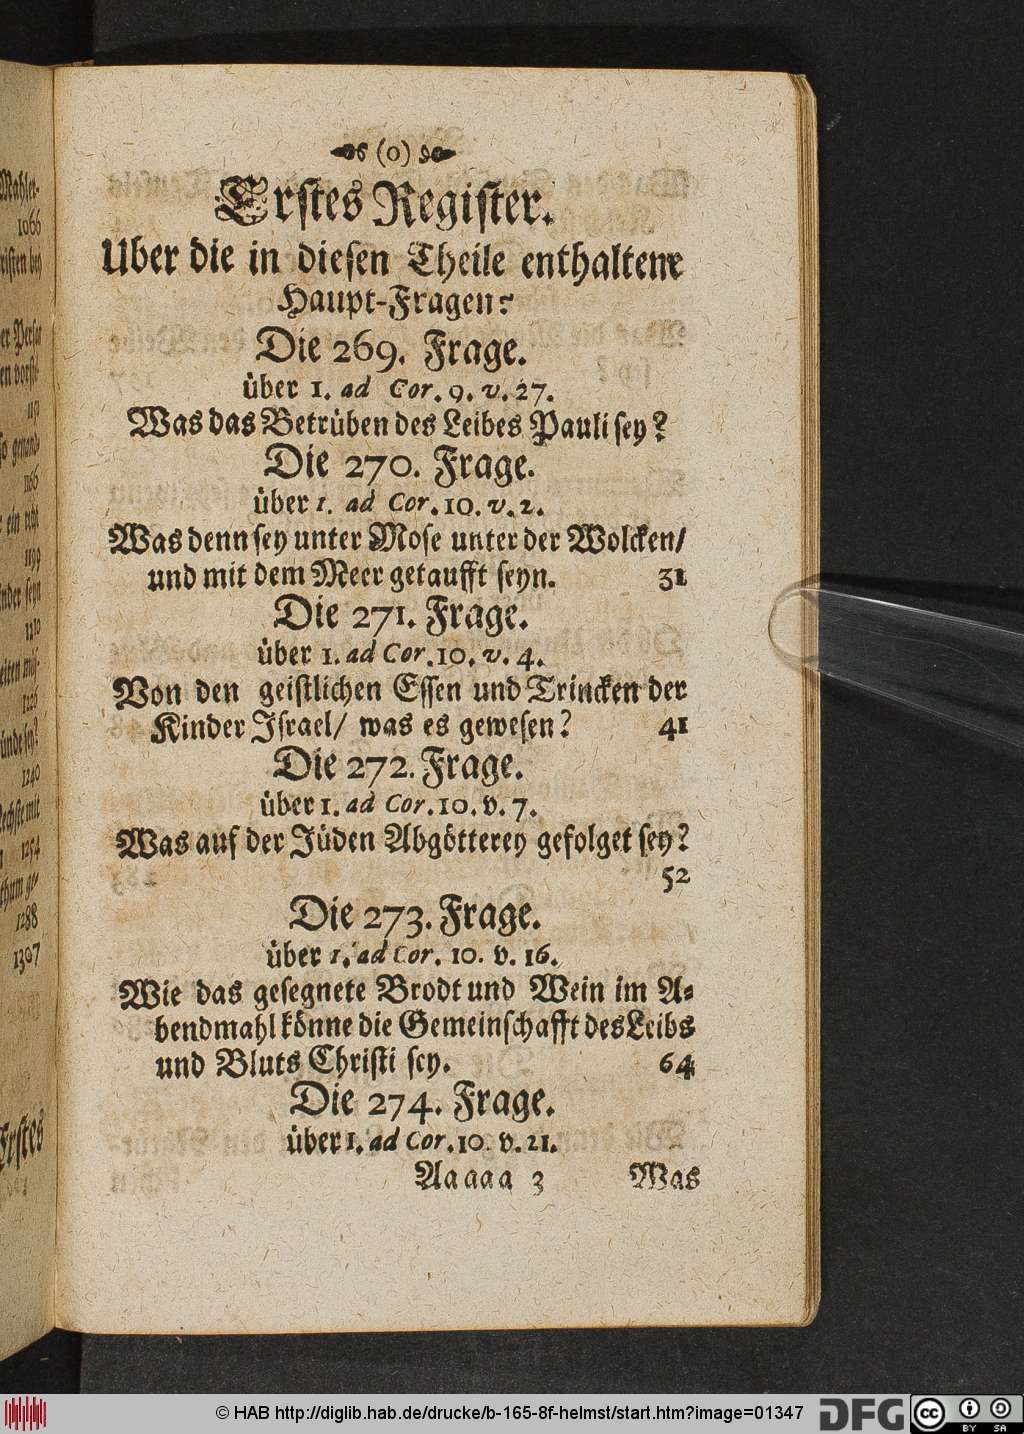 (0)
Erstes Register.
Uber die in diesen Theile enthaltene
Haupt-Fragen:
Die 269. Frage.
über 1. ad Cor. 9. v. 27.
Was das Betrüben des Leibes Pauli sey?
Die 270. Frage.
über 1. ad Cor. 10. v. 2.
Was denn sey unter Mose unter der Wolcken/
und mit dem Meer getaufft seyn. 31
Die 271. Frage.
über 1. ad Cor. 10. v. 4.
Von den geistlichen Essen und Trincken der
Kinder Israel/ was es gewesen? 41
Die 272. Frage.
über 1. ad Cor. 10. v. 7.
Was auf der Jüden Abgötterey gefolget sey?
52
Die 273. Frage.
über 1. ad Cor. 10. v. 16.
Wie das gesegnete Brodt und Wein im A-
bendmahl könne die Gemeinschafft des Leibs
und Bluts Christi sey. 64
Die 274. Frage.
über 1. ad Cor. 10. v. 21.
Aaaaa 3 Was
1066
1240
1254
1288
1307
Erstes
© HAB http://diglib.hab.de/drucke/b-165-8f-helmst/start.htm?image=01347
DFG
cc BY SA